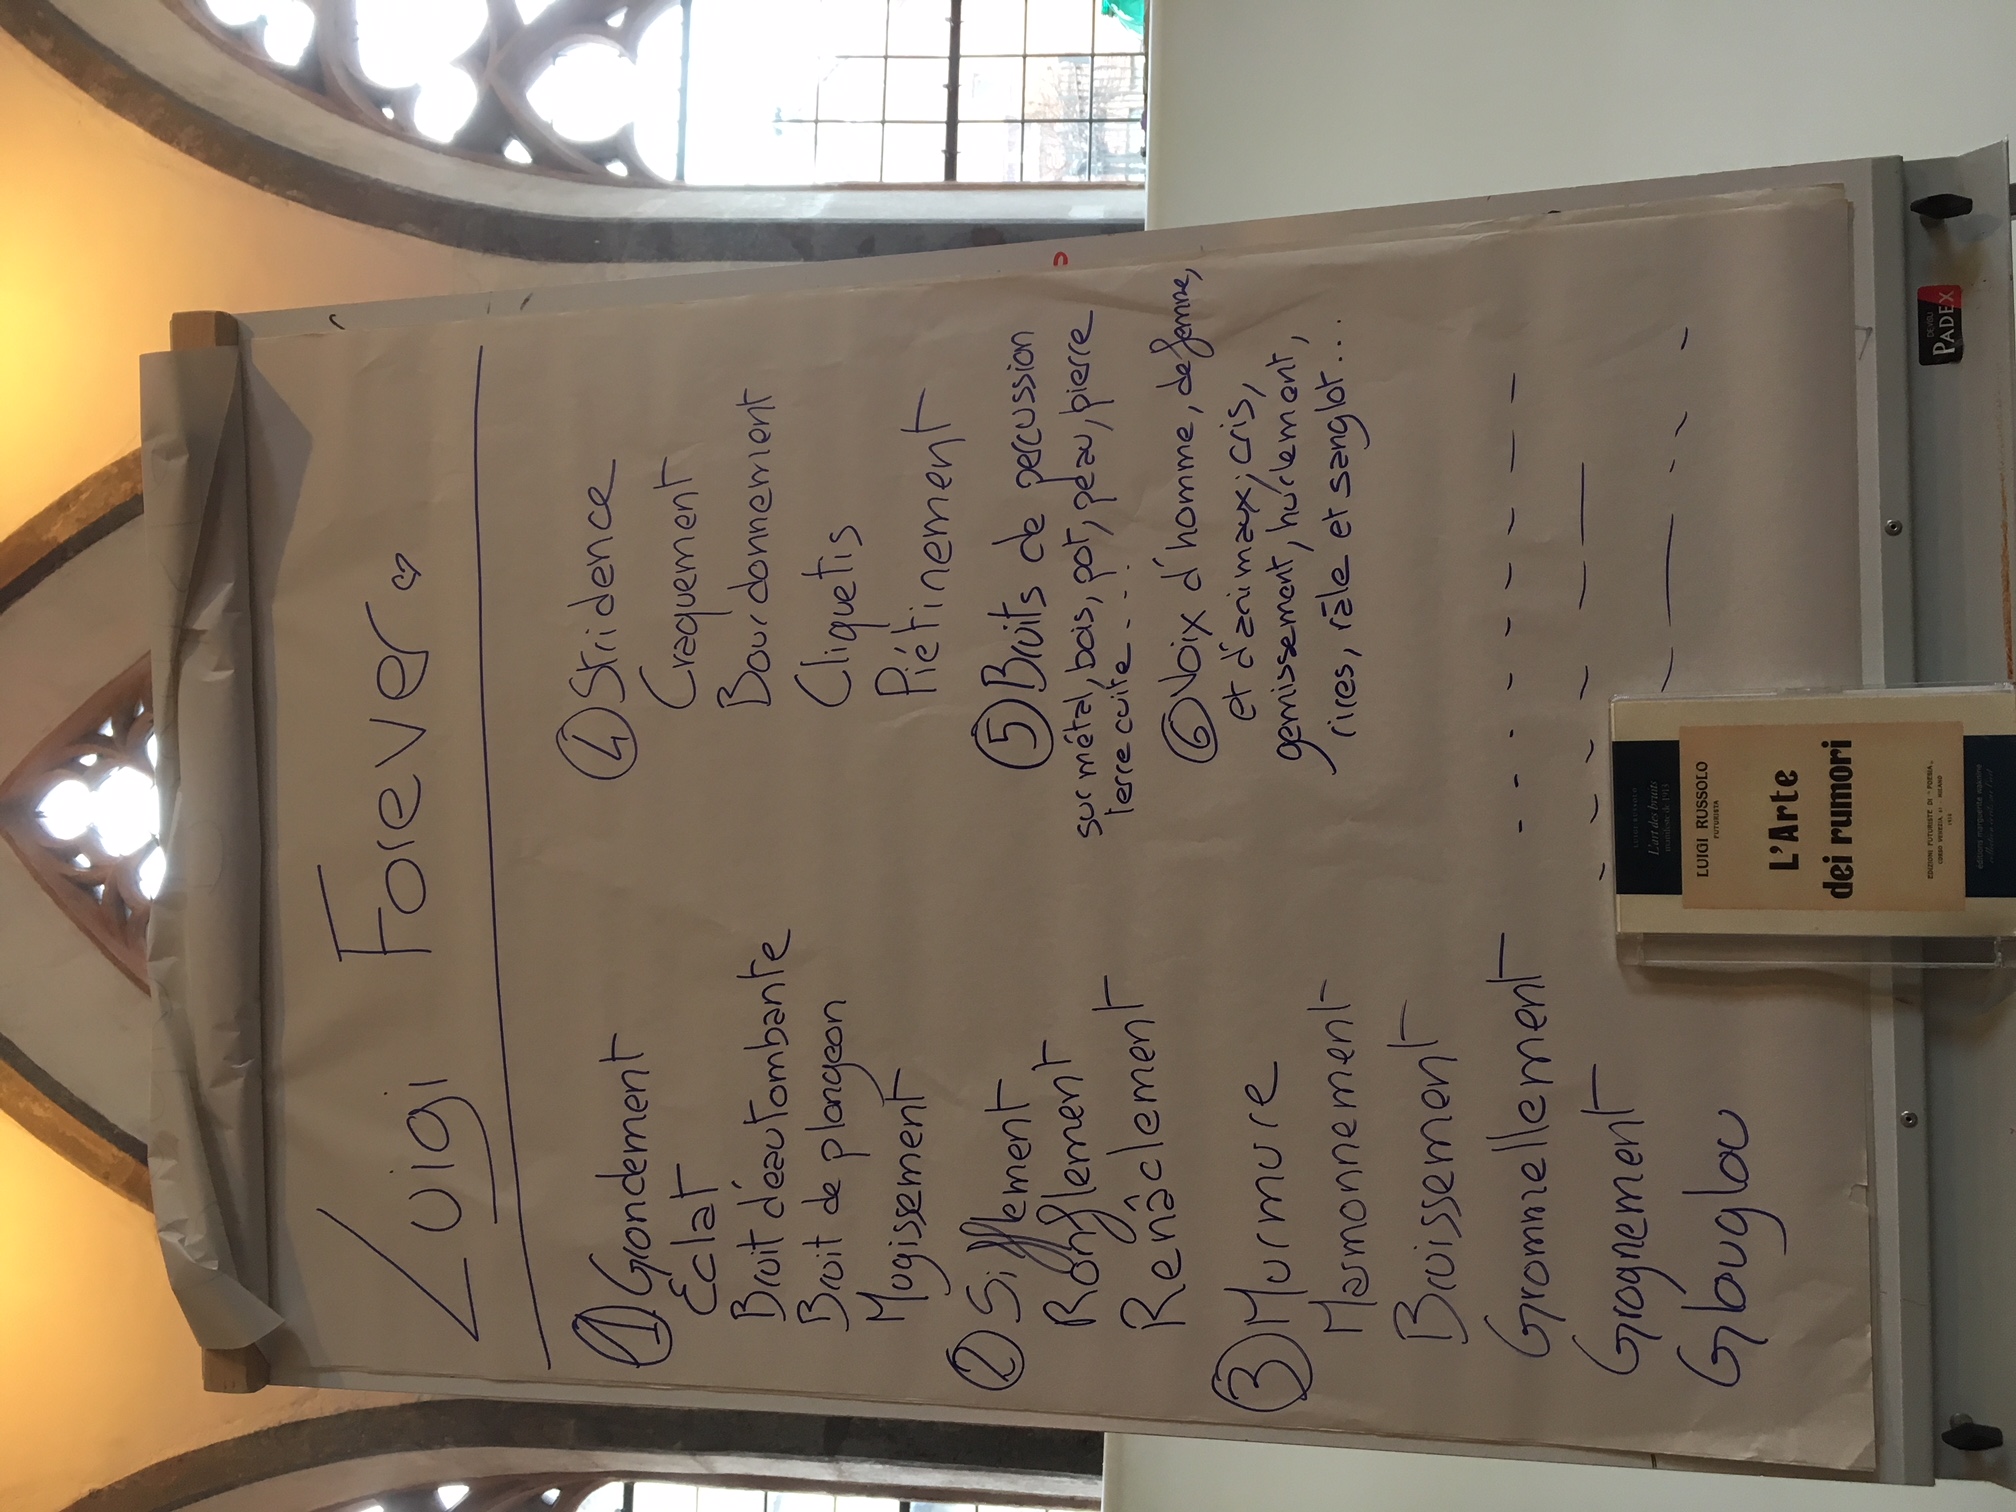 Luigi Forever
① Grondement
Eclat
Bruit d'eau tombante
Bruit de plongeon
Mugissement
② Sifflement
Ronflement
Renâclement
③ Murmure
Marmonnement
Bruissement
Grommellement
Grognement
Glouglou
④ Stridence
Craquement
Bourdonnement
Cliquetis
Piétinement
⑤ Bruits de percussion
sur métal, bois, pot, peau, pierre
terre cuite....
⑥ Voix d'homme, de femme,
et d'animaux; cris,
gemissement, hurlement,
rires, râle et sanglot...
L'art des bruits
LUIGI RUSSOLO
FUTURISTA
L'Arte
dei rumori
EDIZIONI FUTURISTE DI "POESIA"
PADEX